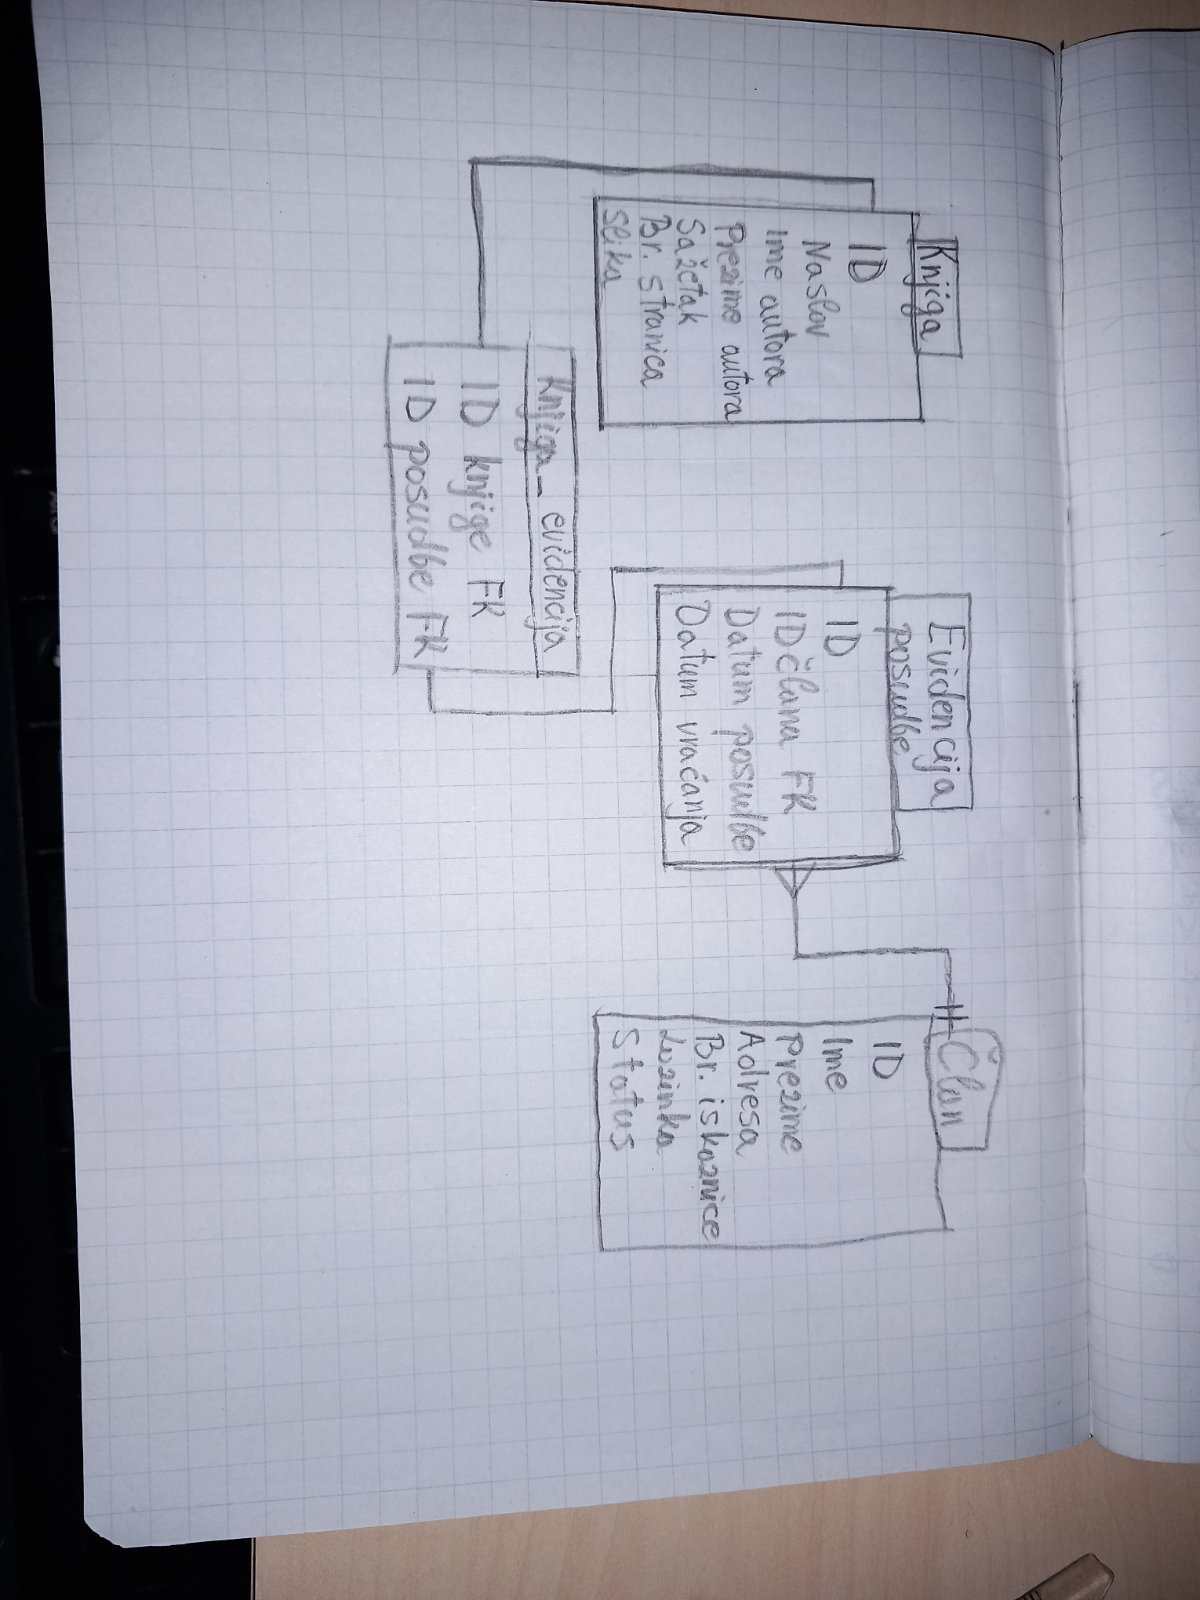 Knjiga
ID
Naslov
Ime autora
Prezime autora
Sažetak
Br. stranica
Slika
Evidencija
posudbe
ID
ID člana FK
Datum posudbe
Datum vraćanja
Član
ID
Ime
Prezime
Adresa
Br. iskaznice
Lozinka
Status
Knjiga_evidencija
ID knjige FK
ID posudbe FK